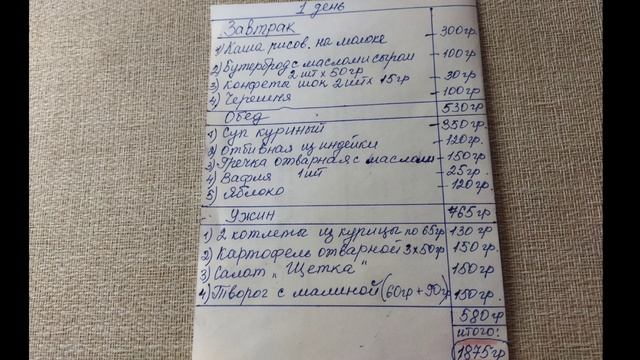 1 день
Завтрак
1) Каша рисов. на молоке – 300гр.
2) Бутерброд с маслом и сыром – 100гр
2 шт х 50гр
3) Конфета шок. 2 шт х 15гр – 30гр
4) Черешня – 100гр
530гр
Обед
1) Суп куриный – 350гр.
2) Отбивная из индейки – 120гр.
3) Гречка отварная с маслом – 150гр
4) Вафля 1 шт – 25гр.
5) Яблоко – 120гр.
Ужин 765гр
1) 2 котлеты из курицы по 65гр 130гр
2) Картофель отварной 3х50гр 150гр.
3) Салат „Щетка" 150гр
4) Творог с малиной (60гр + 90гр) 150гр.
580гр
итого:
1875гр